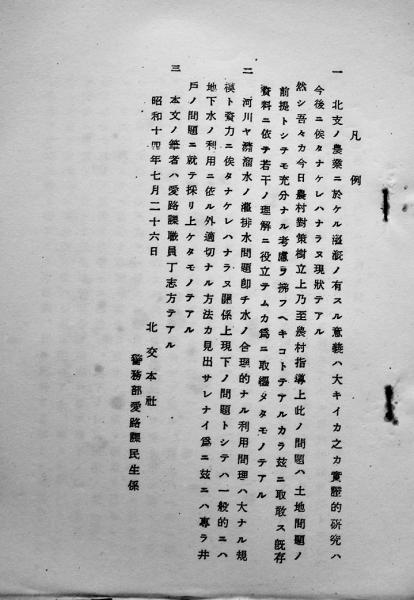 凡例
一 北支ノ農業ニ於ケル灌漑ノ有スル意義ハ大キイカ之カ實證的研究ハ
今後ニ俟タナケレハナラヌ現狀テアル
然シ吾々カ今日農村對策樹立上乃至農村指導上此ノ問題ハ土地問題ノ
前提トシテモ充分ナル考慮ヲ拂フヘキコトテアルカラ玆ニ取敢ス既存
資料ニ依テ若干ノ理解ニ役立テムカ爲ニ取纏メタモノテアル
二 河川ヤ瀦溜水ノ灌排水問題卽チ水ノ合理的ナル利用問理ハ大ナル規
模ト資力ニ俟タナケレハナラヌ關係上現下ノ問題トシテハ一般的ニハ
地下水ノ利用ニ依ル外適切ナル方法カ見出サレナイ爲ニ玆ニハ專ラ井
戶ノ問題ニ就テ採リ上ケタモノテアル
三 本文ノ筆者ハ愛路課職員丁志方テアル
昭和十四年七月二十六日
北交本社
警務部愛路課民生係